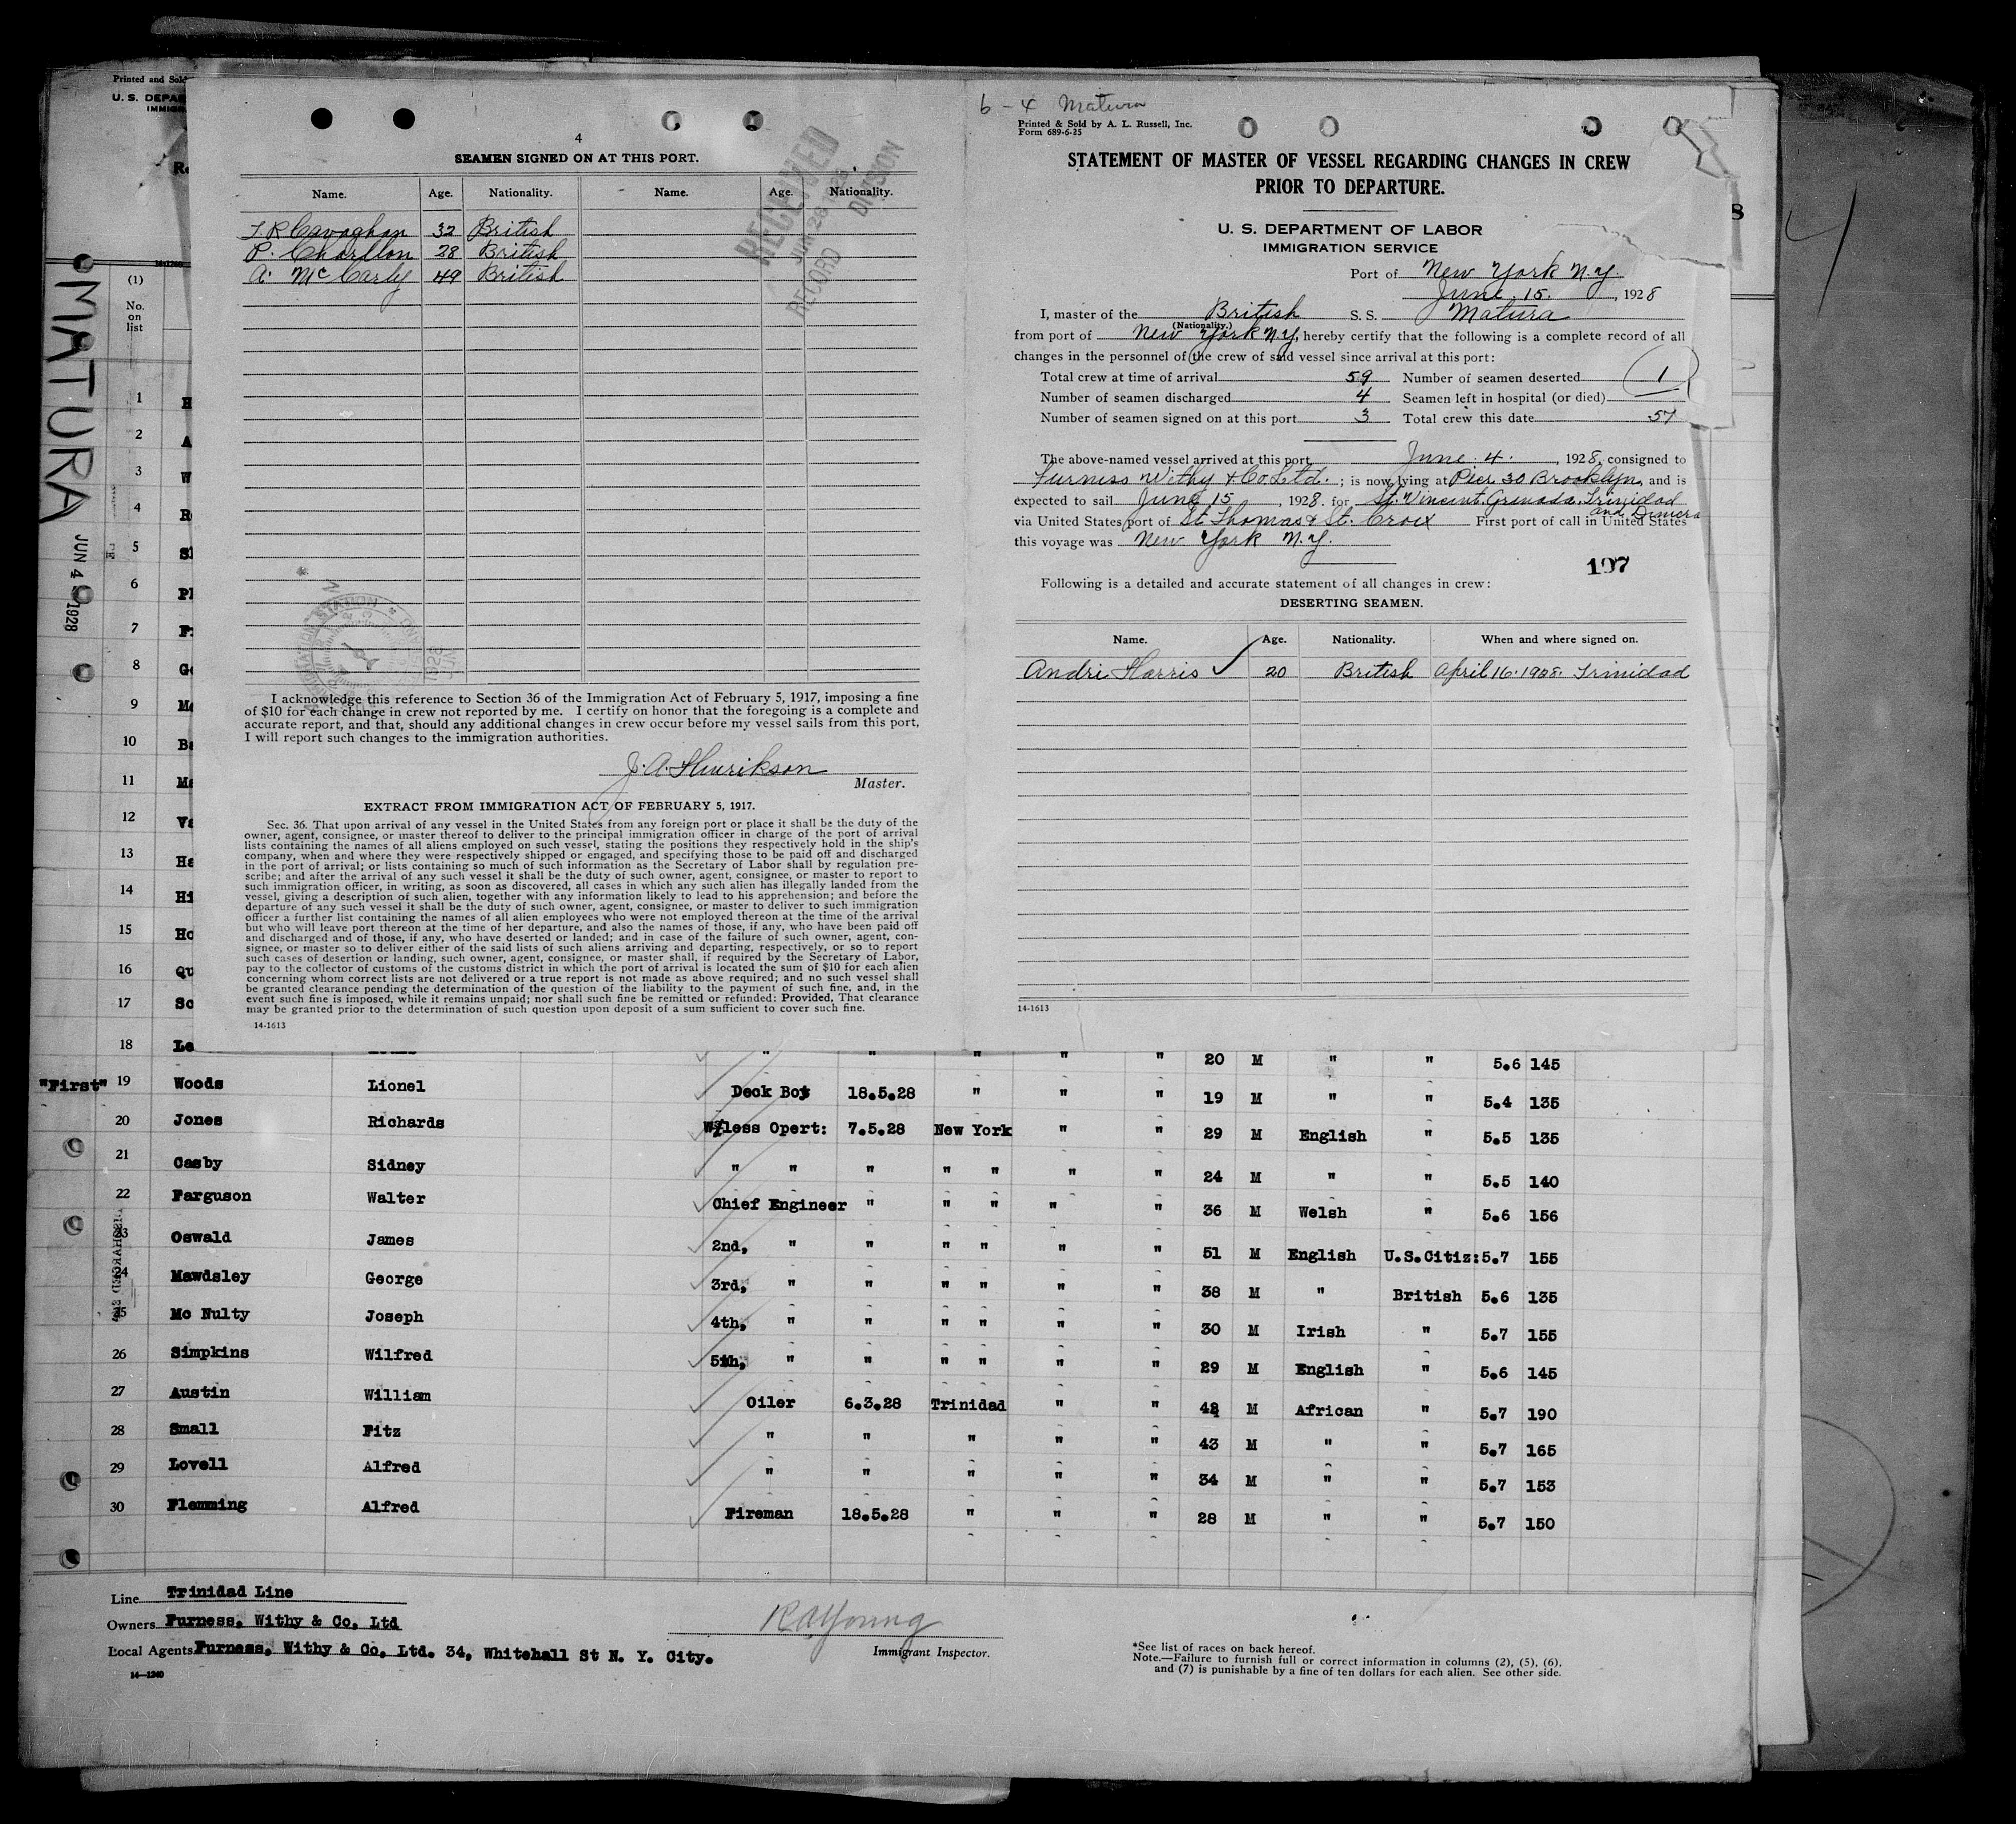 Printed and Sold
U. S. DEPAR
IMMIGR
MATURA
JUN 4 1928
4
SEAMEN SIGNED ON AT THIS PORT.
Name. Age. Nationality. Name. Age. Nationality.
Cavaghan 32 British
P. Charllon 28 British
A. McCarly 49 British
RECEIVED
JUN 26 1928
RECORD DIVISION
I acknowledge this reference to Section 36 of the Immigration Act of February 5, 1917, imposing a fine
of $10 for each change in crew not reported by me. I certify on honor that the foregoing is a complete and
accurate report, and that, should any additional changes in crew occur before my vessel sails from this port,
I will report such changes to the immigration authorities.
J. A. Henrikson
Master.
EXTRACT FROM IMMIGRATION ACT OF FEBRUARY 5, 1917.
Sec. 36. That upon arrival of any vessel in the United States from any foreign port or place it shall be the duty of the
owner, agent, consignee, or master thereof to deliver to the principal immigration officer in charge of the port of arrival
lists containing the names of all aliens employed on such vessel, stating the positions they respectively hold in the ship's
company, when and where they were respectively shipped or engaged, and specifying those to be paid off and discharged
in the port of arrival; or lists containing so much of such information as the Secretary of Labor shall by regulation pre-
scribe; and after the arrival of any such vessel it shall be the duty of such owner, agent, consignee, or master to report to
such immigration officer, in writing, as soon as discovered, all cases in which any such alien has illegally landed from the
vessel, giving a description of such alien, together with any information likely to lead to his apprehension; and before the
departure of any such vessel it shall be the duty of such owner, agent, consignee, or master to deliver to such immigration
officer a further list containing the names of all alien employees who were not employed thereon at the time of the arrival
but who will leave port thereon at the time of her departure, and also the names of those, if any, who have been paid off
and discharged and of those, if any, who have deserted or landed; and in case of the failure of such owner, agent, con-
signee, or master so to deliver either of the said lists of such aliens arriving and departing, respectively, or so to report
such cases of desertion or landing, such owner, agent, consignee, or master shall, if required by the Secretary of Labor,
pay to the collector of customs of the customs district in which the port of arrival is located the sum of $10 for each alien
concerning whom correct lists are not delivered or a true report is not made as above required; and no such vessel shall
be granted clearance pending the determination of the question of the liability to the payment of such fine, and, in the
event such fine is imposed, while it remains unpaid; nor shall such fine be remitted or refunded: Provided, That clearance
may be granted prior to the determination of such question upon deposit of a sum sufficient to cover such fine.
14-1613
6-4 Matura
Printed & Sold by A. L. Russell, Inc.
Form 689-6-25
STATEMENT OF MASTER OF VESSEL REGARDING CHANGES IN CREW
PRIOR TO DEPARTURE.
U. S. DEPARTMENT OF LABOR
IMMIGRATION SERVICE
Port of New York N.Y.
June 15. , 1928
I, master of the British S. S. Matura
(Nationality.)
from port of New York N.Y, hereby certify that the following is a complete record of all
changes in the personnel of the crew of said vessel since arrival at this port:
Total crew at time of arrival 59 Number of seamen deserted 1
Number of seamen discharged 4 Seamen left in hospital (or died)
Number of seamen signed on at this port 3 Total crew this date 57
The above-named vessel arrived at this port June 4. , 1928, consigned to
Furness Withy & Co. Ltd. ; is now lying at Pier 30 Brooklyn, and is
expected to sail June 15 , 1928. for St. Vincent, Grenada, Trinidad
and Demera
via United States port of St Thomas & St. Croix First port of call in United States
this voyage was New York N.Y.
197
Following is a detailed and accurate statement of all changes in crew:
DESERTING SEAMEN.
Name. Age. Nationality. When and where signed on.
Andri Harris 20 British April 16. 1928. Trinidad
14-1613
(1)
No.
on
list
1 H
2 A
3 W
4 R
5 Sl
6 Pl
7 F
8 Ge
9 Mo
10 Ba
11 Ma
12 Va
13 Ha
14 Hi
15 Ho
16 Qu
17 Sc
18 Le " " " " " 20 M " " 5.6 145
"First" 19 Woods Lionel Deck Boy 18.5.28 " " " 19 M " " 5.4 135
20 Jones Richards W/less Opert: 7.5.28 New York " " 29 M English " 5.5 135
21 Casby Sidney " " " " " " " 24 M " " 5.5 140
22 Farguson Walter Chief Engineer " " " " " 36 M Welsh " 5.6 156
23 Oswald James 2nd, " " " " " " 51 M English U.S.Citiz: 5.7 155
24 Mawdsley George 3rd, " " " " " " 38 M " British 5.6 135
25 Mc Nulty Joseph 4th, " " " " " " 30 M Irish " 5.7 155
26 Simpkins Wilfred 5th, " " " " " " 29 M English " 5.6 145
27 Austin William Oiler 6.3.28 Trinidad " " 42 M African " 5.7 190
28 Small Fitz " " " " " 43 M " " 5.7 165
29 Lovell Alfred " " " " " 34 M " " 5.7 153
30 Flemming Alfred Fireman 18.5.28 " " " 28 M " " 5.7 150
Line Trinidad Line
Owners Furness, Withy & Co, Ltd
Local Agents Furness, Withy & Co, Ltd. 34, Whitehall St N. Y. City.
14-1240
R A Young
Immigrant Inspector.
*See list of races on back hereof.
Note.—Failure to furnish full or correct information in columns (2), (5), (6),
and (7) is punishable by a fine of ten dollars for each alien. See other side.